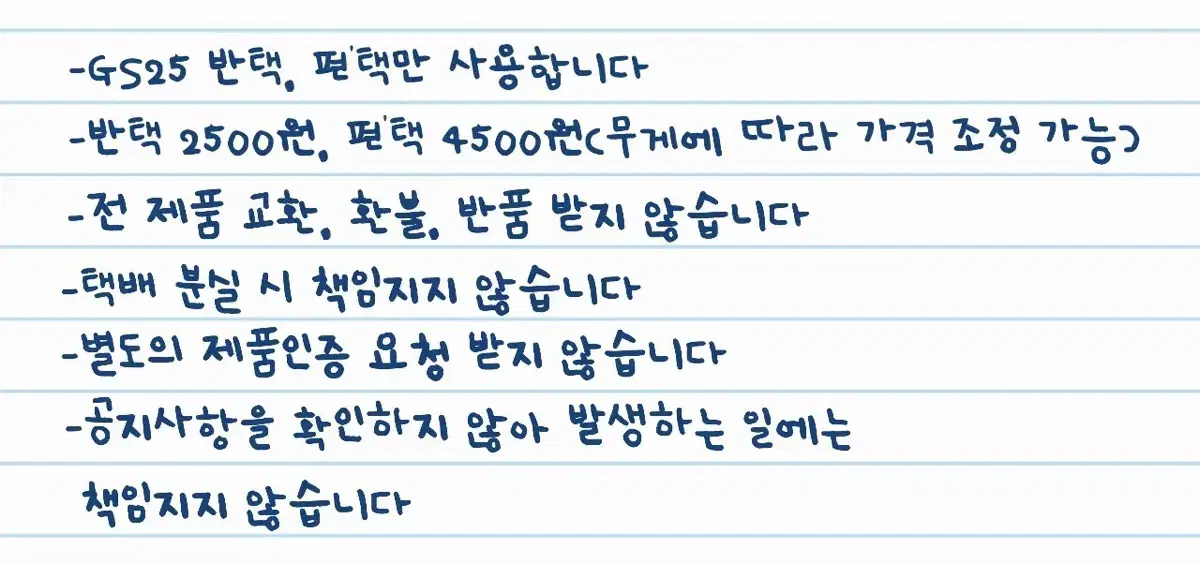 -GS25 반택, 편택만 사용합니다
-반택 2500원, 편택 4500원(무게에 따라 가격 조정 가능)
-전 제품 교환, 환불, 반품 받지 않습니다
-택배 분실 시 책임지지 않습니다
-별도의 제품인증 요청 받지 않습니다
-공지사항을 확인하지 않아 발생하는 일에는
책임지지 않습니다